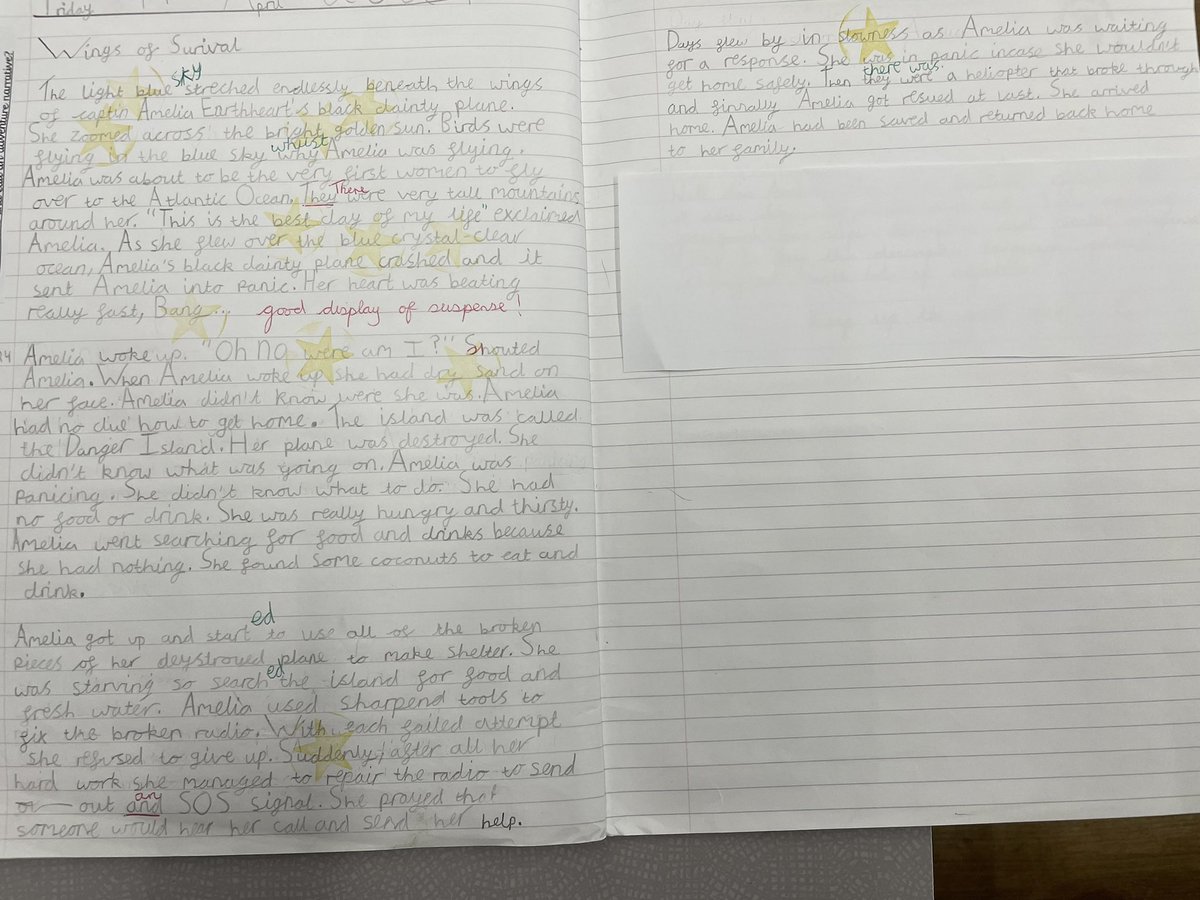 Friday April
Wings of Surival
The light blue sky streched endlessly beneath the wings
of captin Amelia Earthheart's black dainty plane.
She zoomed across the bright golden sun. Birds were
flying in the blue sky why whilst Amelia was flying.
Amelia was about to be the very first women to fly
over to the Atlantic Ocean. They There were very tall mountains
around her. "This is the best day of my life" exclaimed
Amelia. As she flew over the blue crystal-clear
ocean, Amelia's black dainty plane crashed and it
sent Amelia into panic. Her heart was beating
really fast, Bang... good display of suspense!
Amelia woke up. "Oh no were am I?" Shouted
Amelia. When Amelia woke up she had dry sand on
her face. Amelia didn't know were she was. Amelia
had no clue how to get home. The island was called
the Danger Island. Her plane was destroyed. She
didn't know what was going on. Amelia was
panicing. She didn't know what to do. She had
no food or drink. She was really hungry and thirsty.
Amelia went searching for food and drinks because
she had nothing. She found some coconuts to eat and
drink.
Amelia got up and started to use all of the broken
pieces of her deystroyed plane to make shelter. She
was starving so searched the island for food and
fresh water. Amelia used sharpend tools to
fix the broken radio. With each failed attempt
she refused to give up. Suddenly, after all her
hard work she managed to repair the radio to send
out and an SOS signal. She prayed that
someone would hear her call and send her help.
Days flew by in slowness as Amelia was waiting
for a response. She was in panic incase she wouldn't
get home safely. Then they were there was a helicopter that broke through
and finnally Amelia got resued at last. She arrived
home. Amelia had been saved and returned back home
to her family.